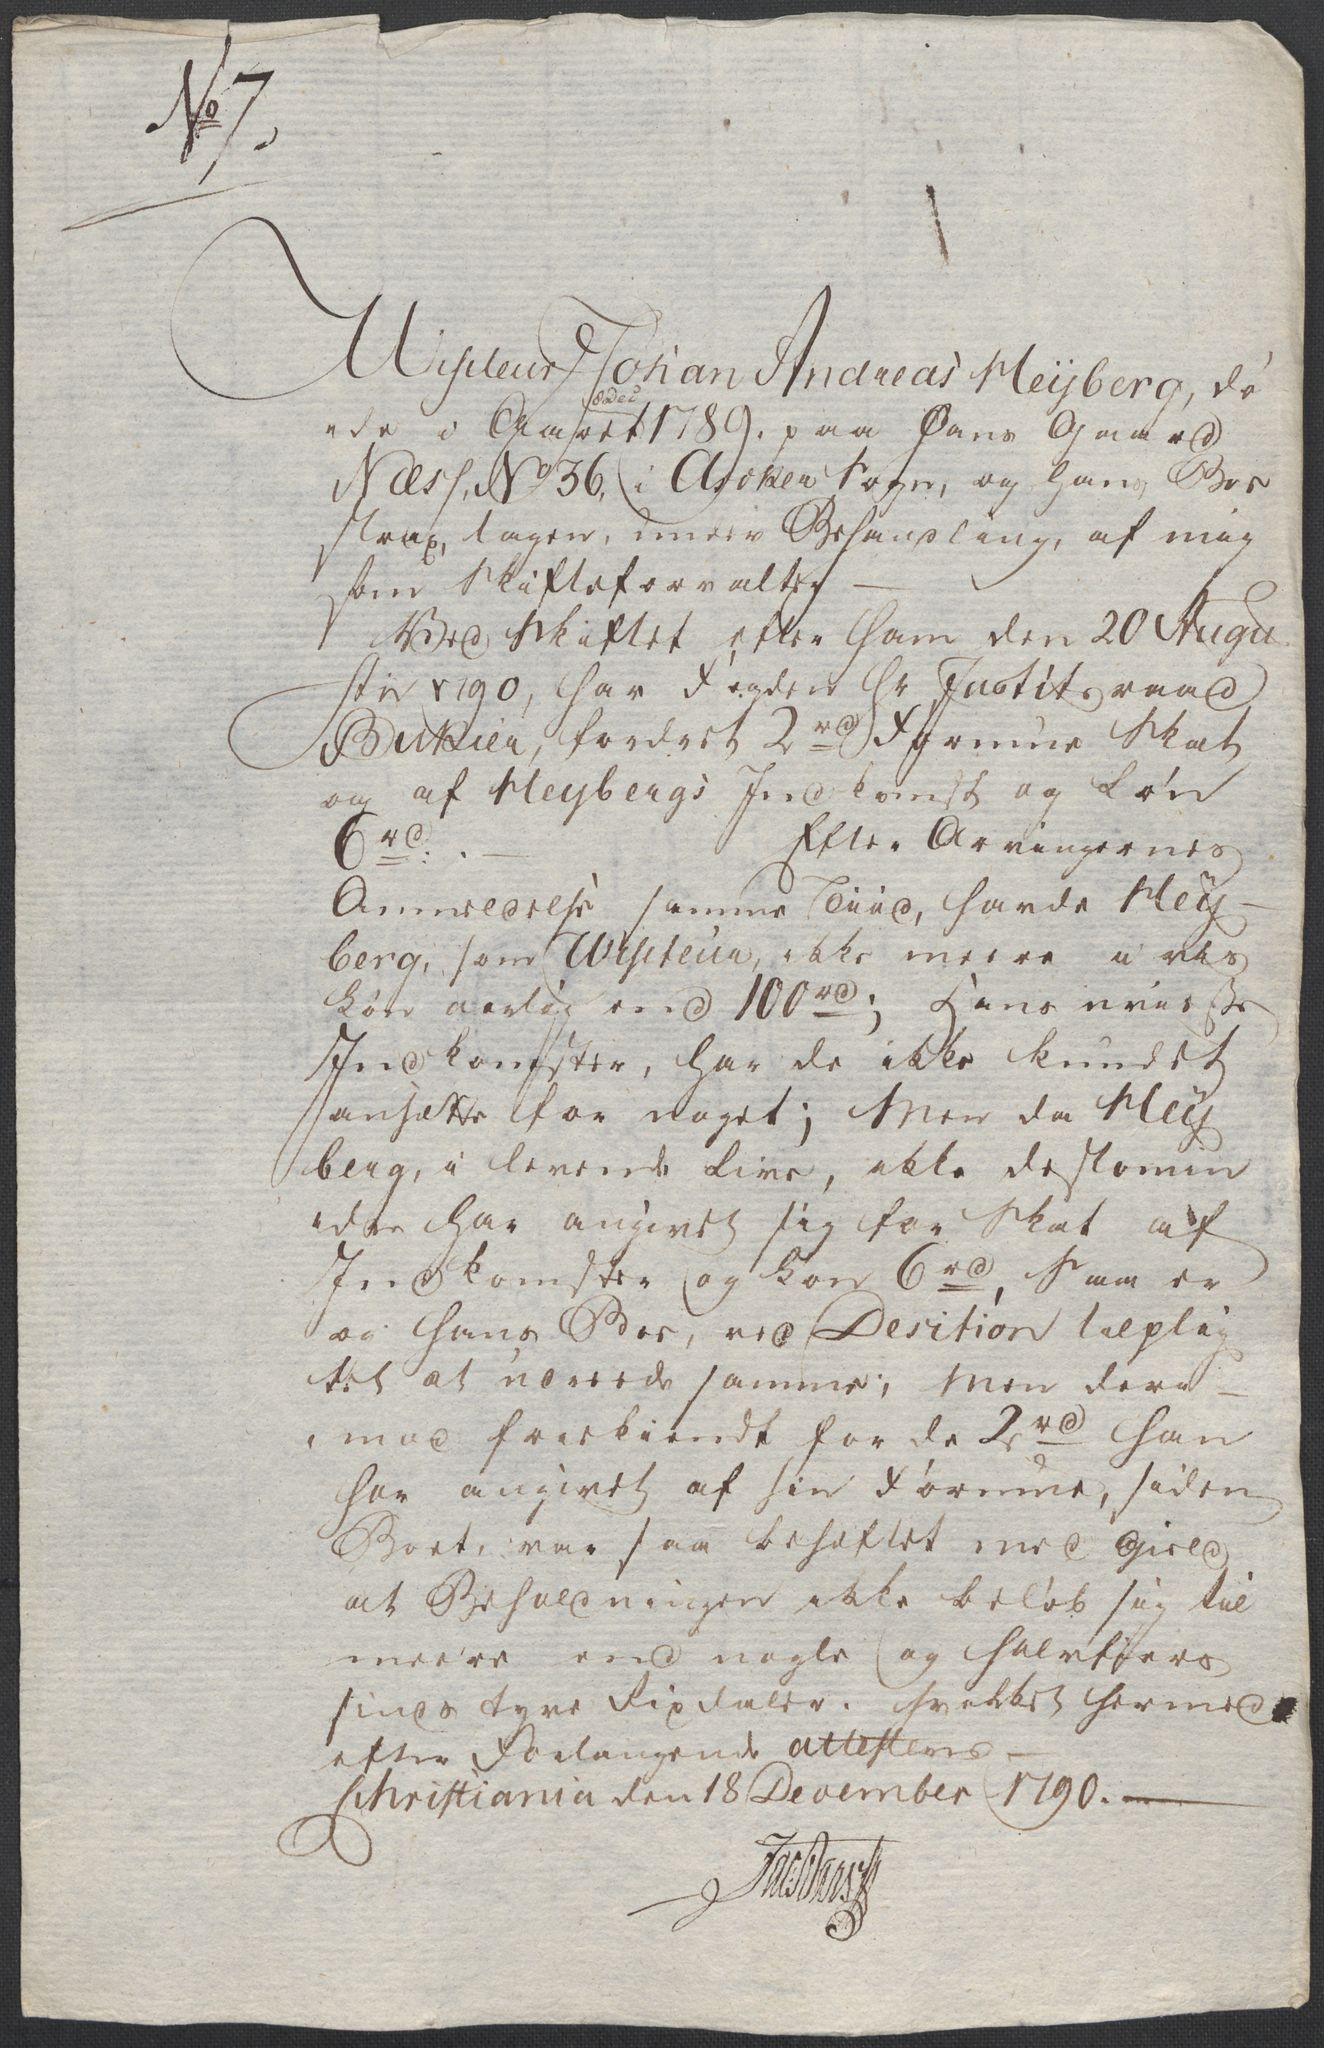 No 7.
Visiteur Johan Andreas Heyberg, dø
ede i Aaret 1789. paa Hans Gaard
Næss, No 36, i Asker Sogn, og hans Boe
strax, tagen, under Behandling, af mig
som Skifteforvalter —
Ved Skiftet efter ham den 20 Augu
sti 1790, har Fogden Hr Justitsraad
fordret 2 rd Formue Skat
og af Heybergs Indkomst og Løn
6 rd. — Efter Arvingernes
Anmeldelse samme Tiid, havde Hey-
berg, som Visiteur, ikke meere i vis
Løn aarlig end 100 rd; Hans uvisse
Indkomster, har de ikke kundet
ansætte for noget; Men da Hey
berg, i levende Live, ikke destomin
dre har angivet sig for Skat af
Indkomster og Løn 6 rd, Saa er
og hans Boe, ved Decition tilplig
tet at udreede samme; Men deri-
mod friekiendt for de 2 rd han
har angivet af sin Formue, siden
Boet, var saa behæftet med Gield
at Beholdningen ikke beløb sig til
meere end nogle og halvtjers
sinds tyve Rixdaler. Hvilket hermed
efter Forlangende attesteres —
Christiania den 18 December 1790. —